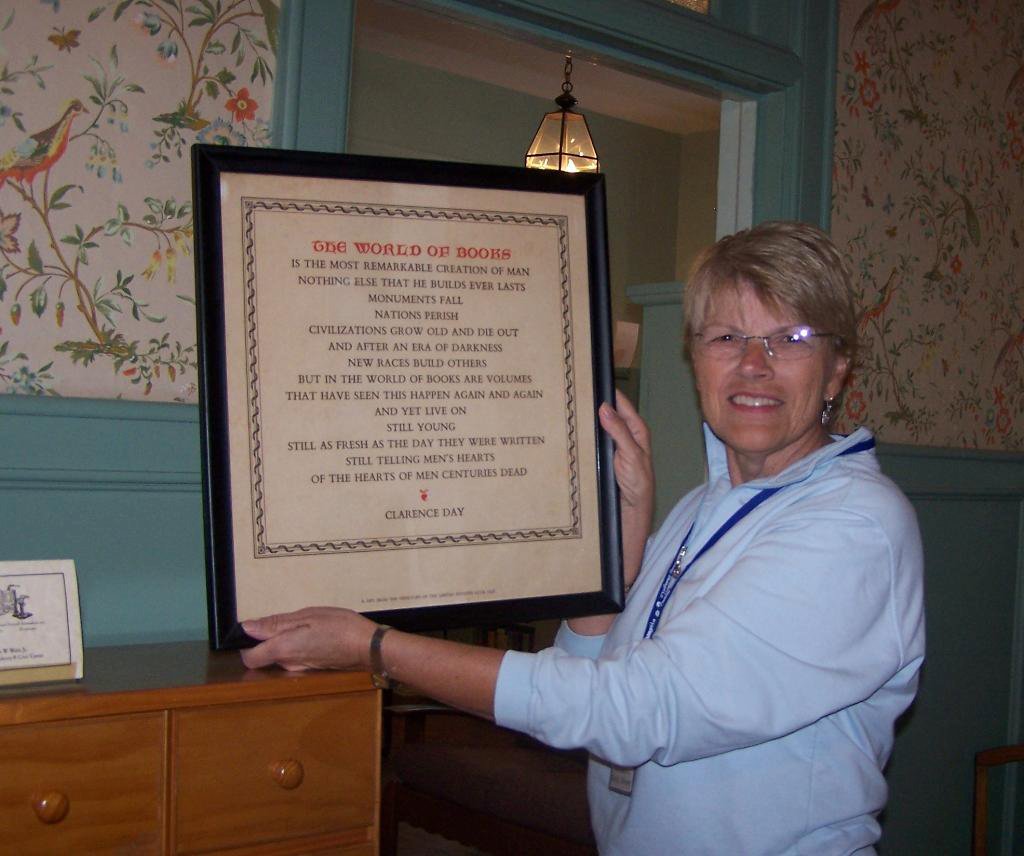 THE WORLD OF BOOKS
IS THE MOST REMARKABLE CREATION OF MAN
NOTHING ELSE THAT HE BUILDS EVER LASTS
MONUMENTS FALL
NATIONS PERISH
CIVILIZATIONS GROW OLD AND DIE OUT
AND AFTER AN ERA OF DARKNESS
NEW RACES BUILD OTHERS
BUT IN THE WORLD OF BOOKS ARE VOLUMES
THAT HAVE SEEN THIS HAPPEN AGAIN AND AGAIN
AND YET LIVE ON
STILL YOUNG
STILL AS FRESH AS THE DAY THEY WERE WRITTEN
STILL TELLING MEN'S HEARTS
OF THE HEARTS OF MEN CENTURIES DEAD
CLARENCE DAY